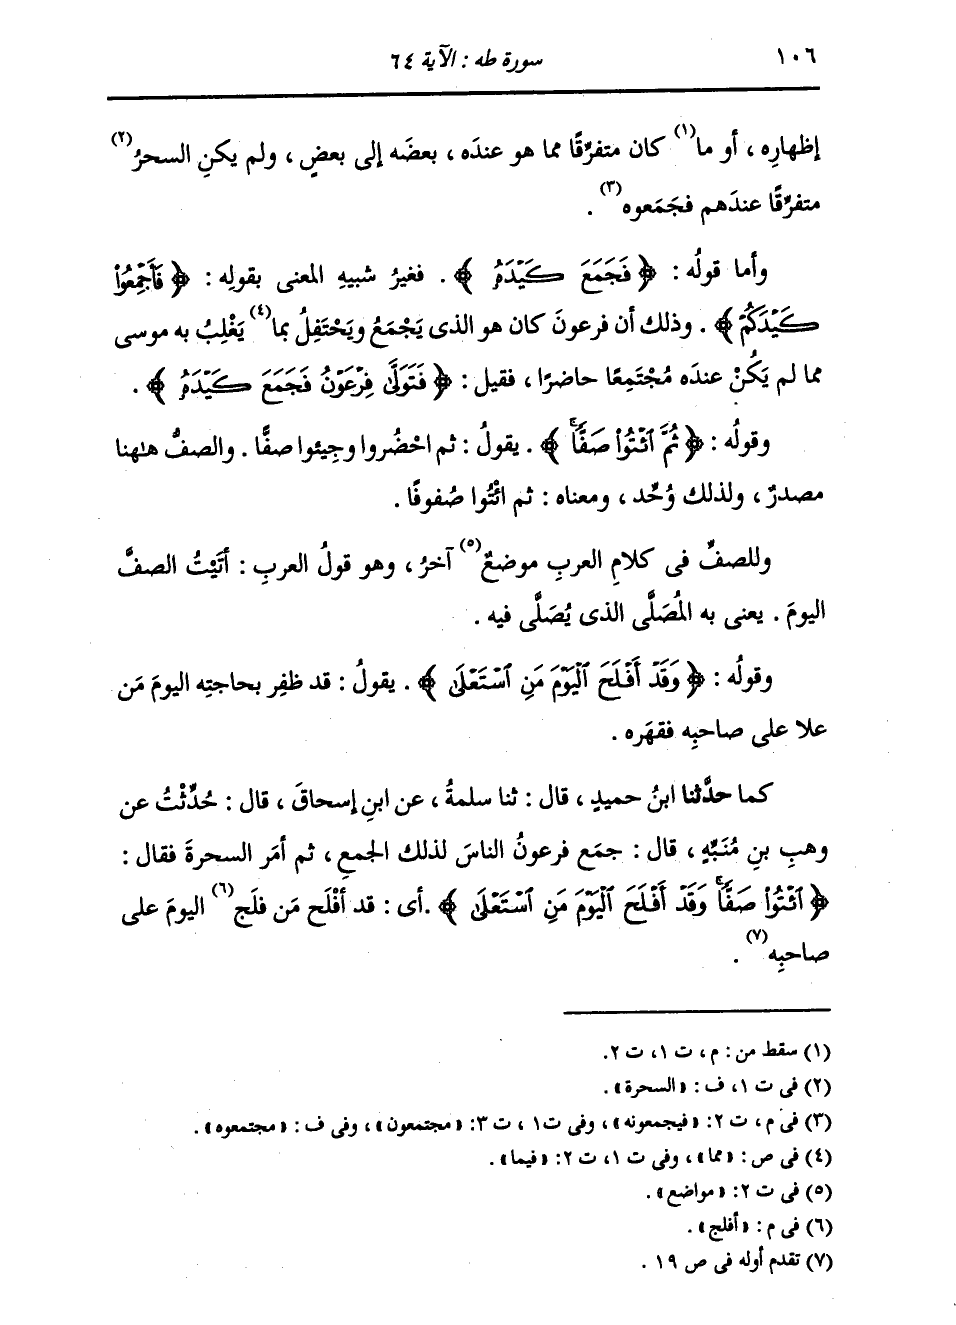 ١٠٦ سورة طه : الآية ٦٤
إظهارِه ، أو ما(١) كان متفرِّقًا مما هو عندَه ، بعضَه إلى بعضٍ ، ولم يكنِ السحرُ(٢)
متفرِّقًا عندَهم فجَمَعوه(٣) .
وأما قولُه : ﴿ فَجَمَعَ كَيْدَهُ ﴾ . فغيرُ شبيهِ المعنى بقولِه : ﴿ فَأَجْمِعُوا۟
كَيْدَكُمْ ﴾ . وذلك أن فرعونَ كان هو الذى يَجْمَعُ ويَحْتَفِلُ بما(٤) يَغْلِبُ به موسى
مما لم يَكُنْ عندَه مُجْتَمِعًا حاضرًا ، فقيل : ﴿ فَتَوَلَّىٰ فِرْعَوْنُ فَجَمَعَ كَيْدَهُ ﴾ .
وقولُه : ﴿ ثُمَّ ٱئْتُوا۟ صَفًّا ۚ ﴾ . يقولُ : ثم احْضُروا وجِيئوا صفًّا . والصفُّ هٰهنا
مصدرٌ ، ولذلك وُحِّد ، ومعناه : ثم ائْتُوا صُفوفًا .
وللصفِّ فى كلامِ العربِ موضعٌ(٥) آخرُ ، وهو قولُ العربِ : أتَيْتُ الصفَّ
اليومَ . يعنى به المُصَلَّى الذى يُصَلَّى فيه .
وقولُه : ﴿ وَقَدْ أَفْلَحَ ٱلْيَوْمَ مَنِ ٱسْتَعْلَىٰ ﴾ . يقولُ : قد ظفِر بحاجتِه اليومَ مَن
علا على صاحبِه فقهَره .
كما حدَّثنا ابنُ حميدٍ ، قال : ثنا سلمةُ ، عن ابنِ إسحاقَ ، قال : حُدِّثْتُ عن
وهبِ بنِ مُنَبِّهٍ ، قال : جمَع فرعونُ الناسَ لذلك الجمعِ ، ثم أمَر السحرةَ فقال :
﴿ ٱئْتُوا۟ صَفًّا ۚ وَقَدْ أَفْلَحَ ٱلْيَوْمَ مَنِ ٱسْتَعْلَىٰ ﴾ .أى : قد أفْلَح مَن فلَج(٦) اليومَ على
صاحبِه(٧) .
(١) سقط من : م ، ت ١، ت ٢.
(٢) فى ت ١، ف : «السحرة» .
(٣) فى م ، ت ٢: «فيجمعونه» ، وفى ت١ ، ت ٣: «مجتمعون» ، وفى ف : «مجتمعوه» .
(٤) فى ص : «مما» ، وفى ت ١، ت ٢: «فيما» .
(٥) فى ت ٢: «مواضع» .
(٦) فى م : «أفلج» .
(٧) تقدم أوله فى ص ١٩ .